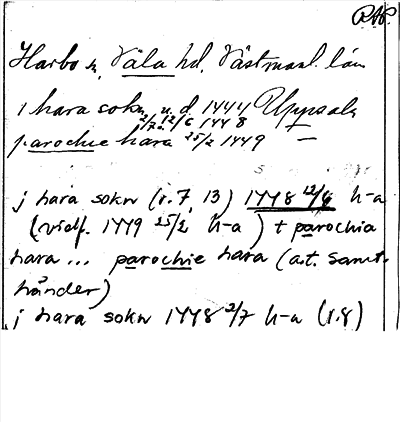 Harbo sn, Våla hd, Västmanl. län
i hara sokn u. d. 1444 Uppsala
2/7 o. 12/6 1448
parochie hara 25/2 1449 —
j hara sokn (r. 7, 13) 1448 12/6 h-a
(vidf. 1449 25/2 h-a) + parochia
hara ... parochie hara (a.t. samt.
händer)
j hara sokn 1448 2/7 h-a (r.8)